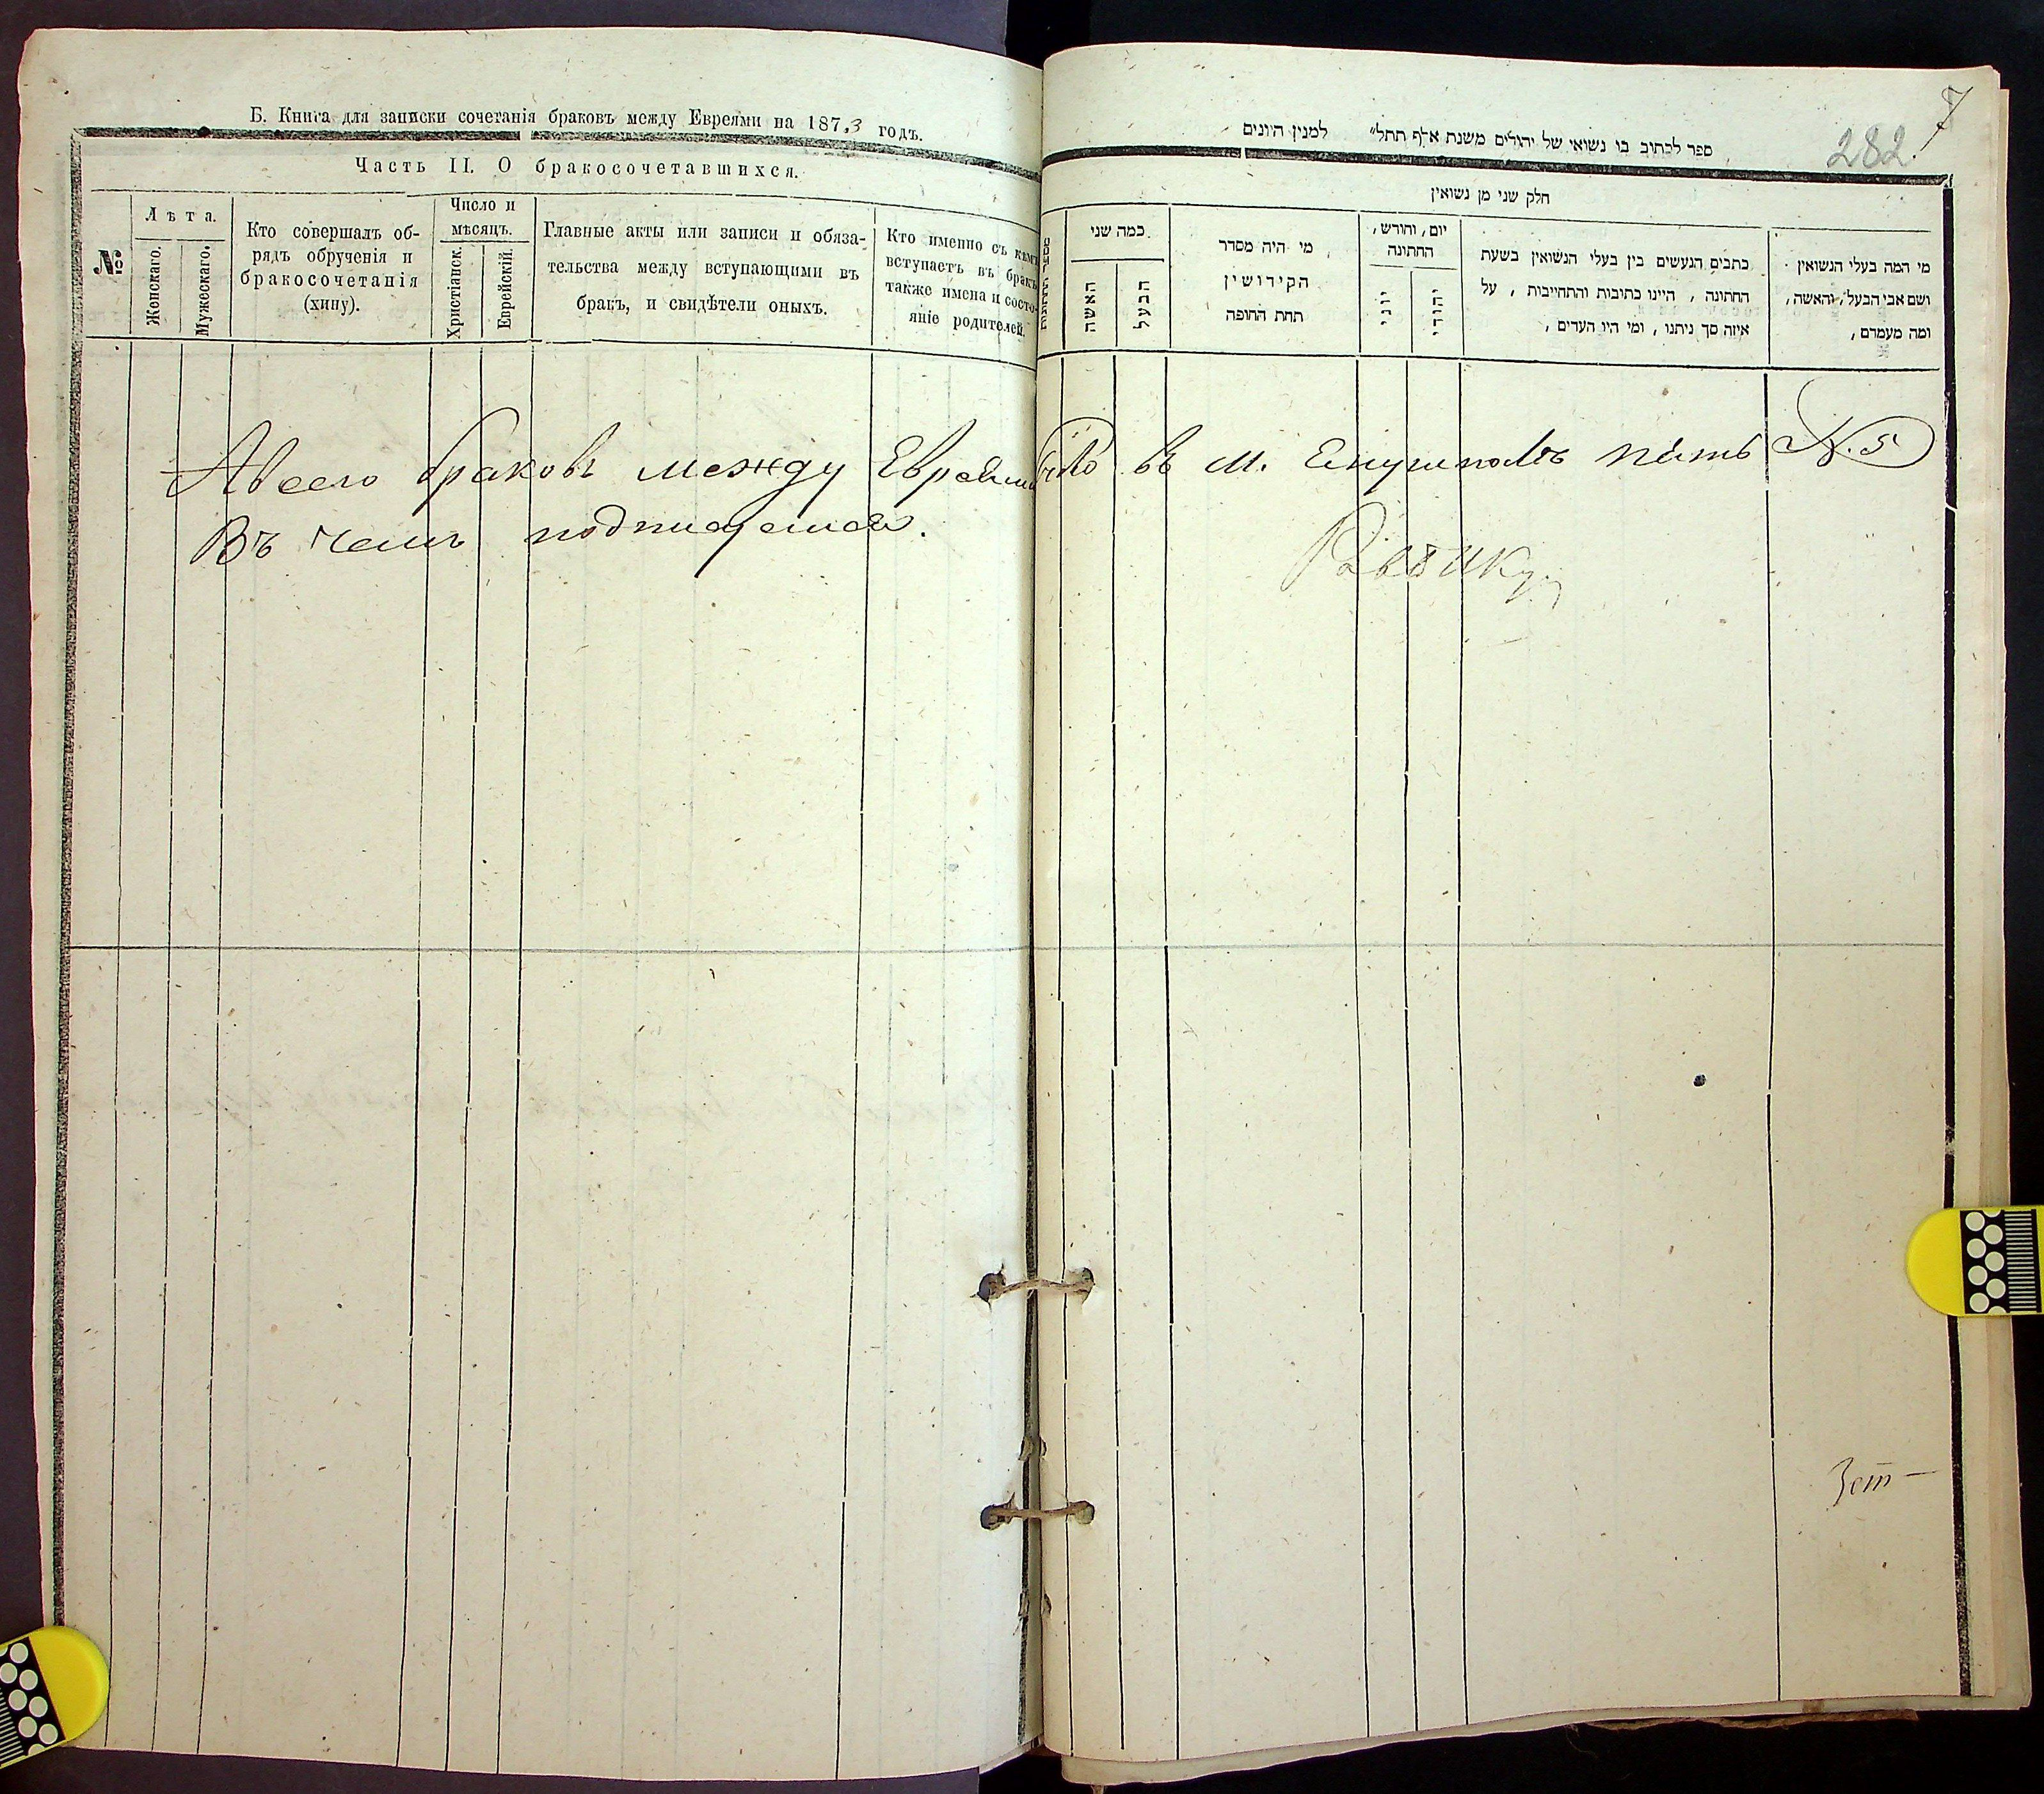 Б. Книга для записки сочетанія браковъ между Евреями на 1873 годъ.
Часть II. О бракосочетавшихся.
№
Лѣта.
Женскаго.
Мужескаго.
Кто совершалъ об-
рядъ обрученія и
бракосочетанія
(хипу).
Число и
мѣсяцъ.
Христіанск.
Еврейскій.
Главные акты или записи и обяза-
тельства между вступающими въ
бракъ, и свидѣтели оныхъ.
Кто именно съ кѣмъ
вступаетъ въ бракъ
также имена и состо-
яніе родителей.
7
282.
ספר לכתוב בו נשואי של יהודים משנת אלף תתל״ למנין היונים
חלק שני מן נשואין
מי המה בעלי הנשואין
ושם אבי הבעל, והאשה,
ומה מעמדם,
כתבים הנעשים בין בעלי הנשואין בשעת
החתונה, היינו כתיבות והתחייבות, על
איזה סך ניתנו, ומי היו העדים,
יום, וחודש,
החתונה
יהודי
יוני
מי היה מסדר
הקידושין
תחת החופה
כמה שני
הבעל
האשה
Авсего браковъ между Евреями было въ м. пять N. 5
Въ чемъ подписуемся.